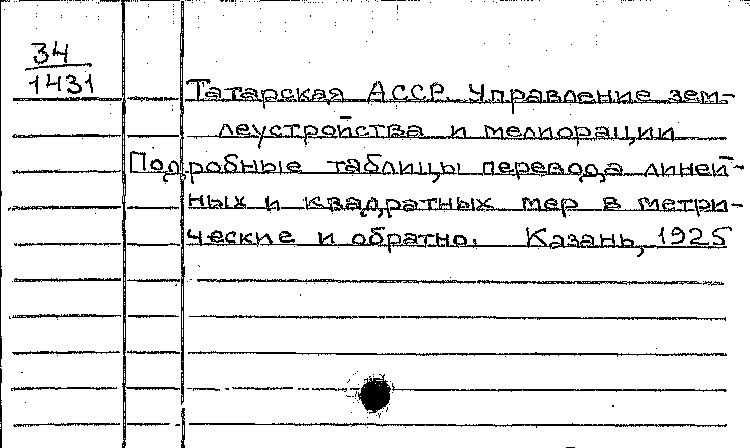 34
1431
Татарская АССР. Управление зем-
леустройства и мелиорации
Подробные таблицы перевода линей-
ных и квадратных мер в метри-
ческие и обратно. Казань, 1925